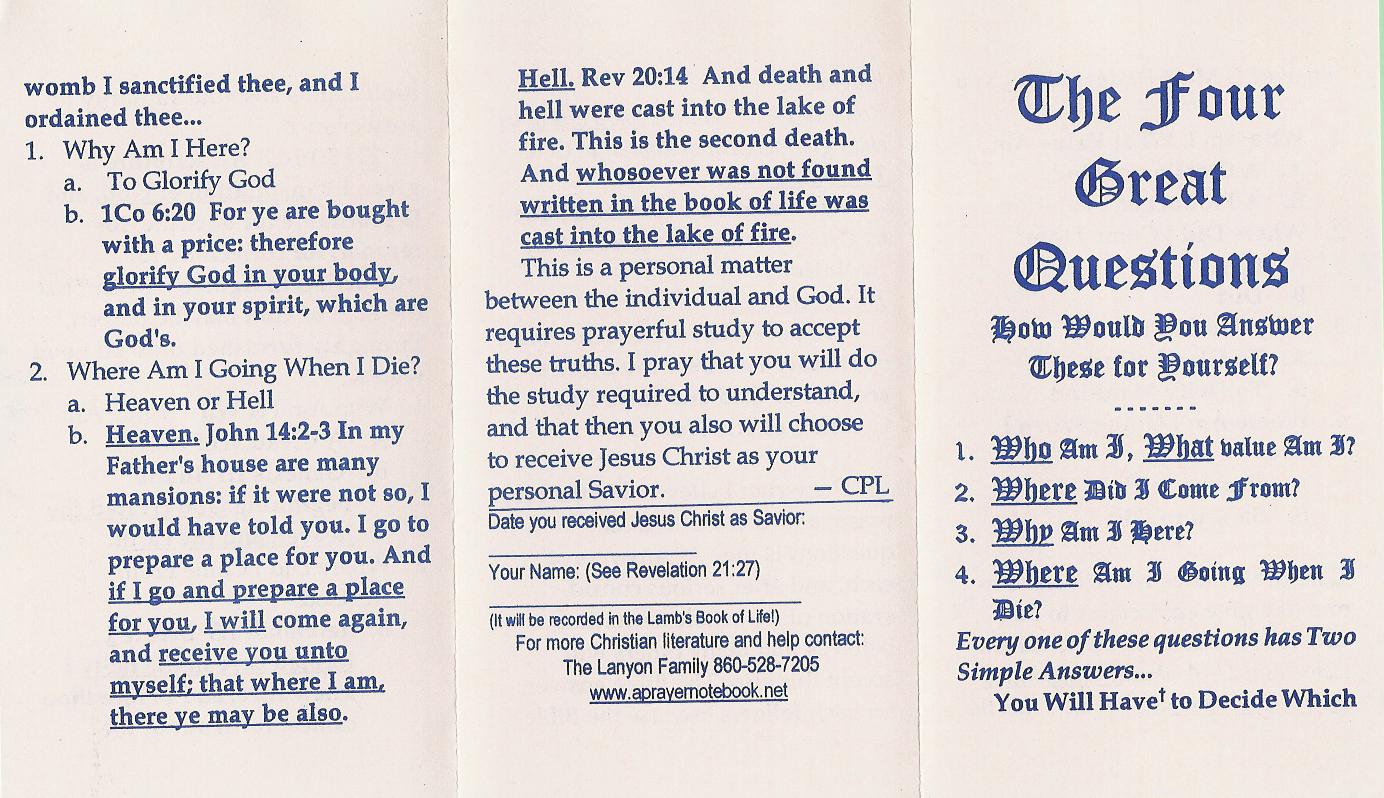 womb I sanctified thee, and I
ordained thee...
1. Why Am I Here?
a. To Glorify God
b. 1Co 6:20 For ye are bought
with a price: therefore
glorify God in your body,
and in your spirit, which are
God's.
2. Where Am I Going When I Die?
a. Heaven or Hell
b. Heaven. John 14:2-3 In my
Father's house are many
mansions: if it were not so, I
would have told you. I go to
prepare a place for you. And
if I go and prepare a place
for you, I will come again,
and receive you unto
myself; that where I am,
there ye may be also.
Hell. Rev 20:14 And death and
hell were cast into the lake of
fire. This is the second death.
And whosoever was not found
written in the book of life was
cast into the lake of fire.
This is a personal matter
between the individual and God. It
requires prayerful study to accept
these truths. I pray that you will do
the study required to understand,
and that then you also will choose
to receive Jesus Christ as your
personal Savior. — CPL
Date you received Jesus Christ as Savior:
Your Name: (See Revelation 21:27)
(It will be recorded in the Lamb's Book of Life!)
For more Christian literature and help contact:
The Lanyon Family 860-528-7205
www.aprayernotebook.net
The Four
Great
Questions
How Would You Answer
These for Yourself?
-------
1. Who Am I, What value Am I?
2. Where Did I Come From?
3. Why Am I Here?
4. Where Am I Going When I
Die?
Every one of these questions has Two
Simple Answers...
You Will Have† to Decide Which